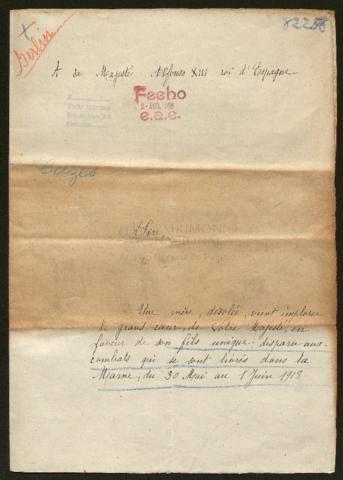 Berlin
82258
A Sa Majesté Alfonso XIII roi d'Espagne
Fecho
2-AGO. 1918
e.a.e.
Sire,
Une mère, désolée, vient implorer
le grand cœur, de Votre Majesté, en
faveur de son fils unique: disparu aux
combats qui se sont livrés dans la
Marne, du 30 Mai au 1 Juin 1918